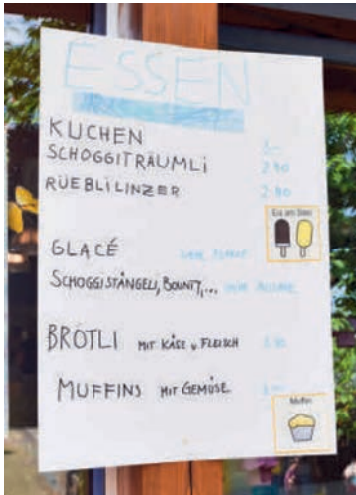 ESSEN
KUCHEN
SCHOGGITRÄUMLI 2.80
RÜEBLILINZER 2.80
Eis am Stiel
GLACÉ
SCHOGGISTÄNGELI, BOUNTY,...
BRÖTLI MIT KÄSE u. FLEISCH
MUFFINS MIT GEMÜSE
Muffin